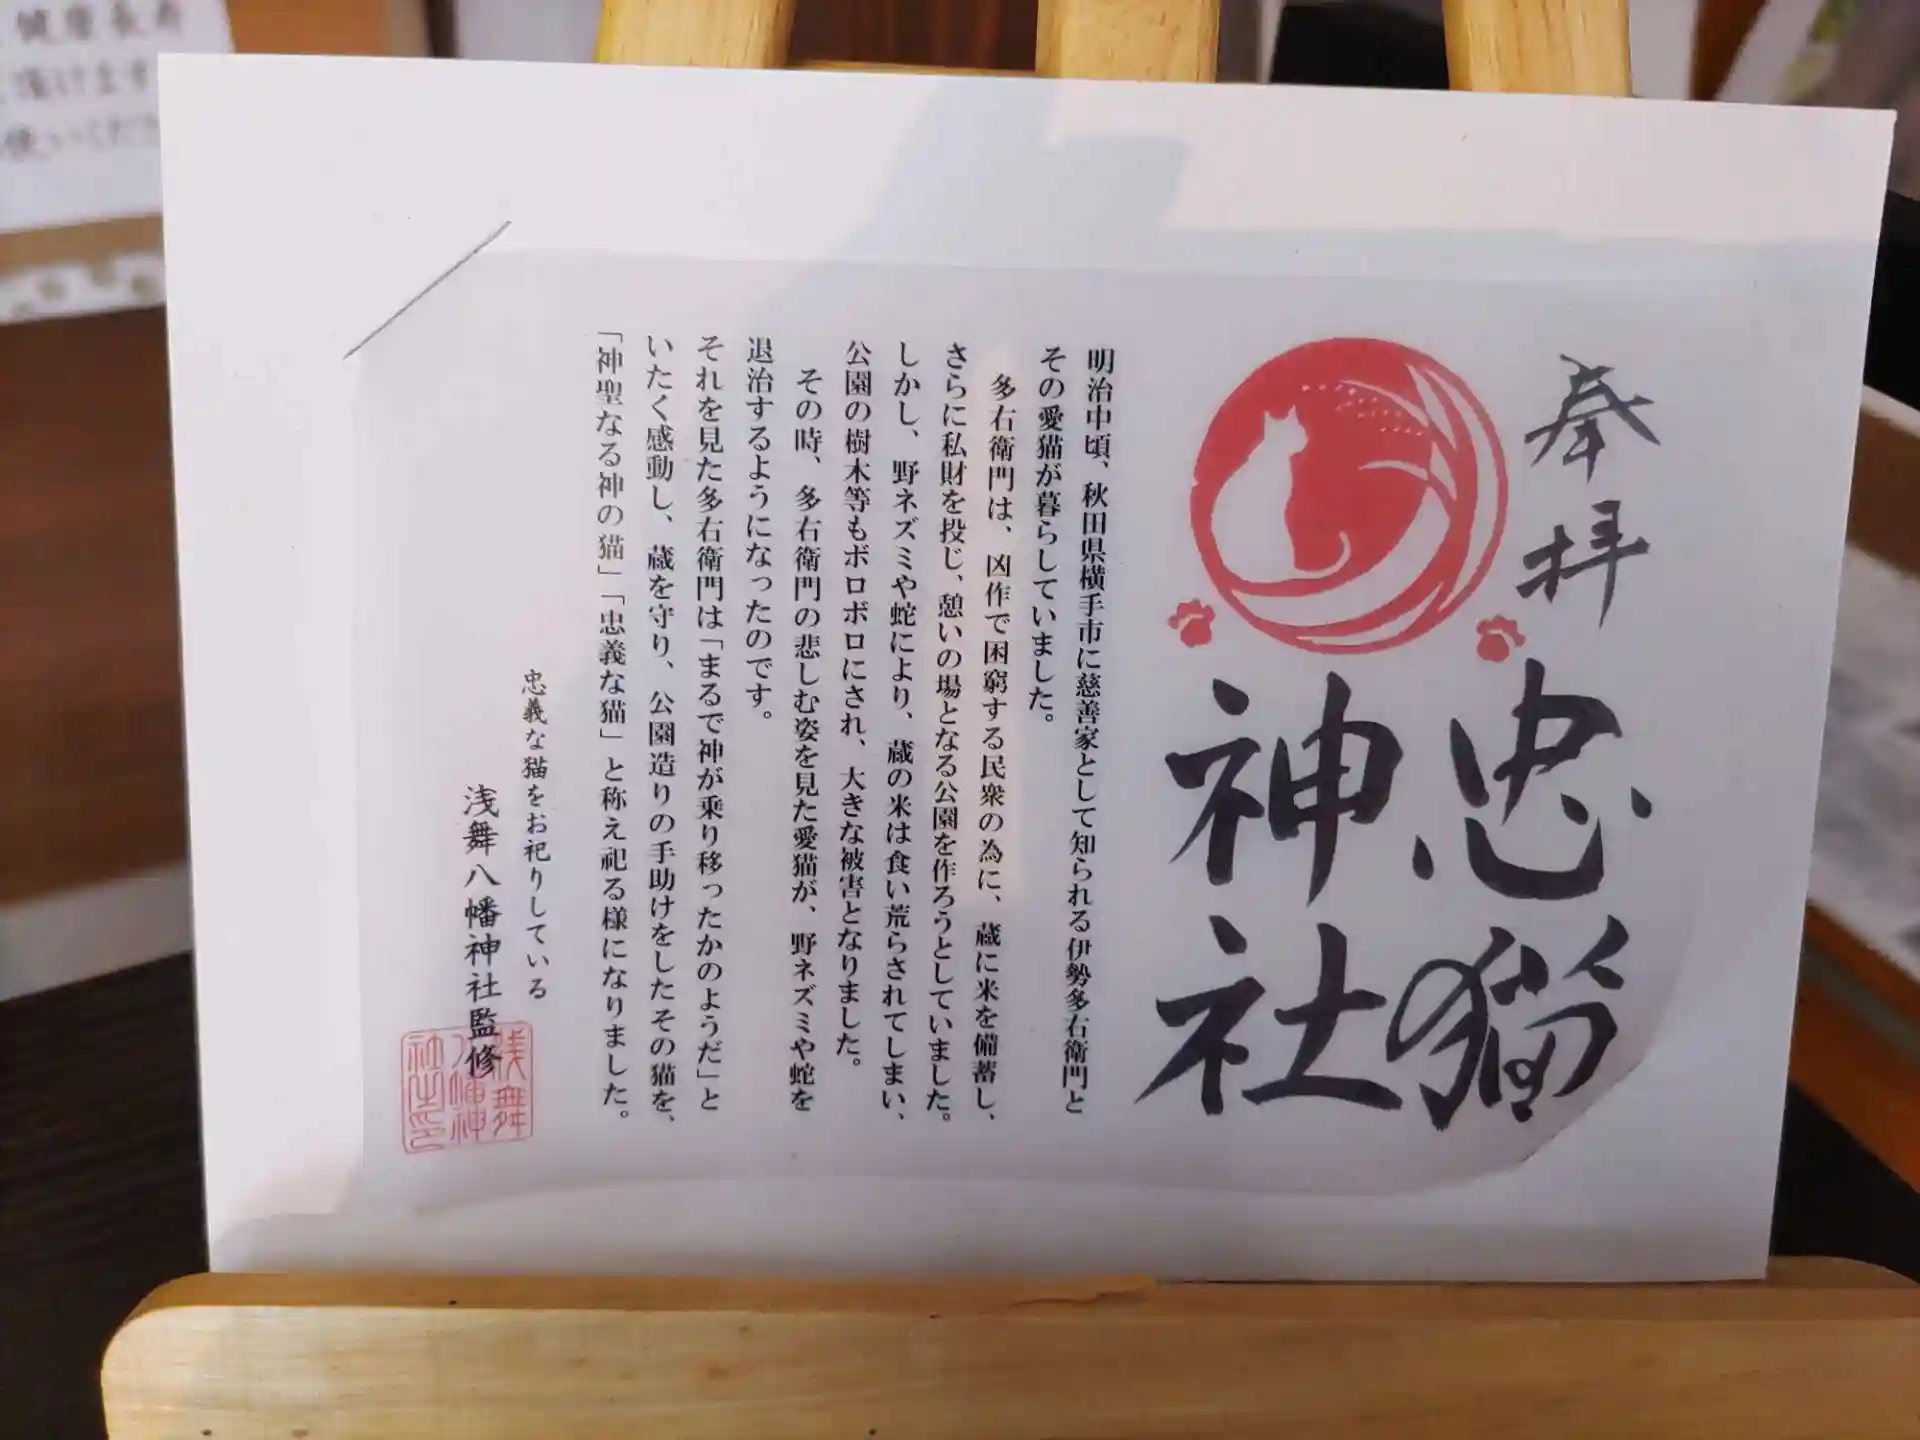 奉拝
忠猫
神社
明治中頃、秋田県横手市に慈善家として知られる伊勢多右衛門と
その愛猫が暮らしていました。
多右衛門は、凶作で困窮する民衆の為に、蔵に米を備蓄し、
さらに私財を投じ、憩いの場となる公園を作ろうとしていました。
しかし、野ネズミや蛇により、蔵の米は食い荒らされてしまい、
公園の樹木等もボロボロにされ、大きな被害となりました。
その時、多右衛門の悲しむ姿を見た愛猫が、野ネズミや蛇を
退治するようになったのです。
それを見た多右衛門は「まるで神が乗り移ったかのようだ」と
いたく感動し、蔵を守り、公園造りの手助けをしたその猫を、
「神聖なる神の猫」「忠義な猫」と称え祀る様になりました。
忠義な猫をお祀りしている
浅舞八幡神社監修
浅舞
八幡神
社之印
健康長寿
頂けます
使いくださ